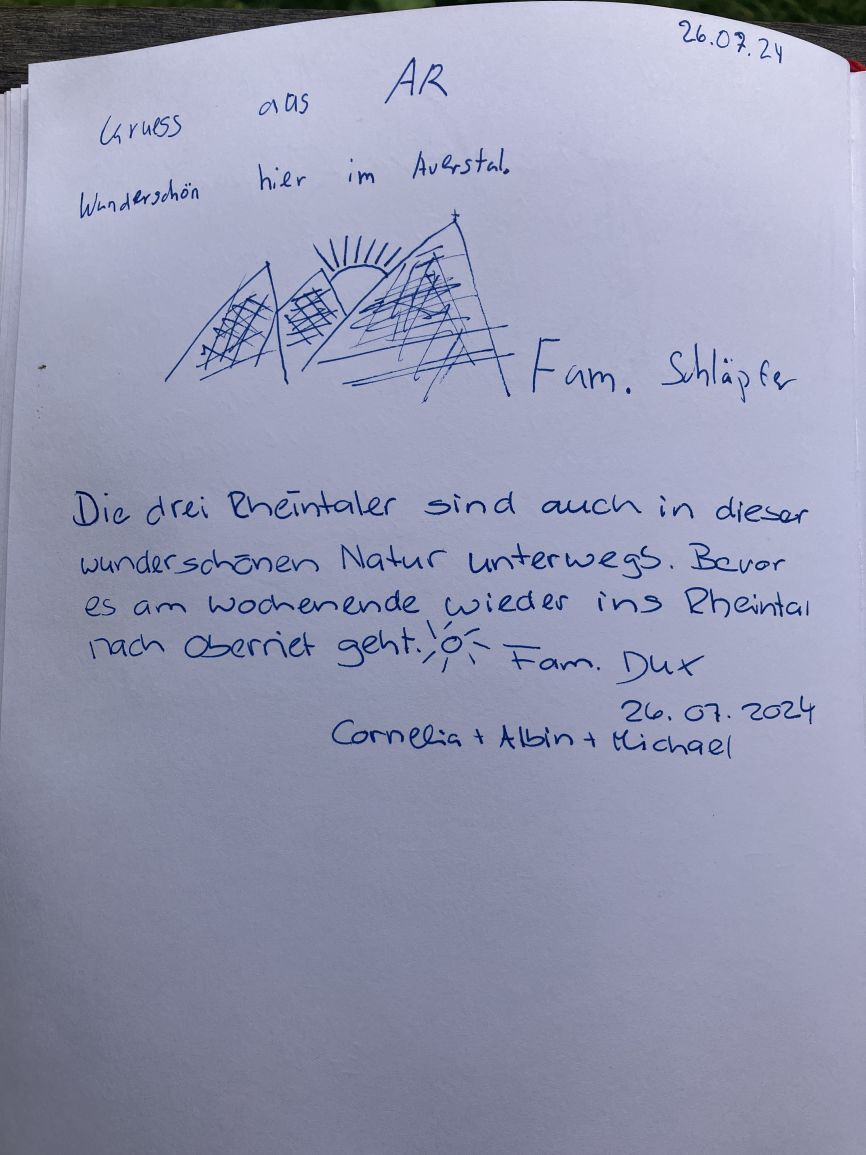 26.07.24
Gruess aus AR
Wunderschön hier im Averstal.
Fam. Schläpfer
Die drei Rheintaler sind auch in dieser
wunderschönen Natur unterwegs. Bevor
es am Wochenende wieder ins Rheintal
nach Oberriet geht. Fam. Dux
26.07.2024
Cornelia + Albin + Michael